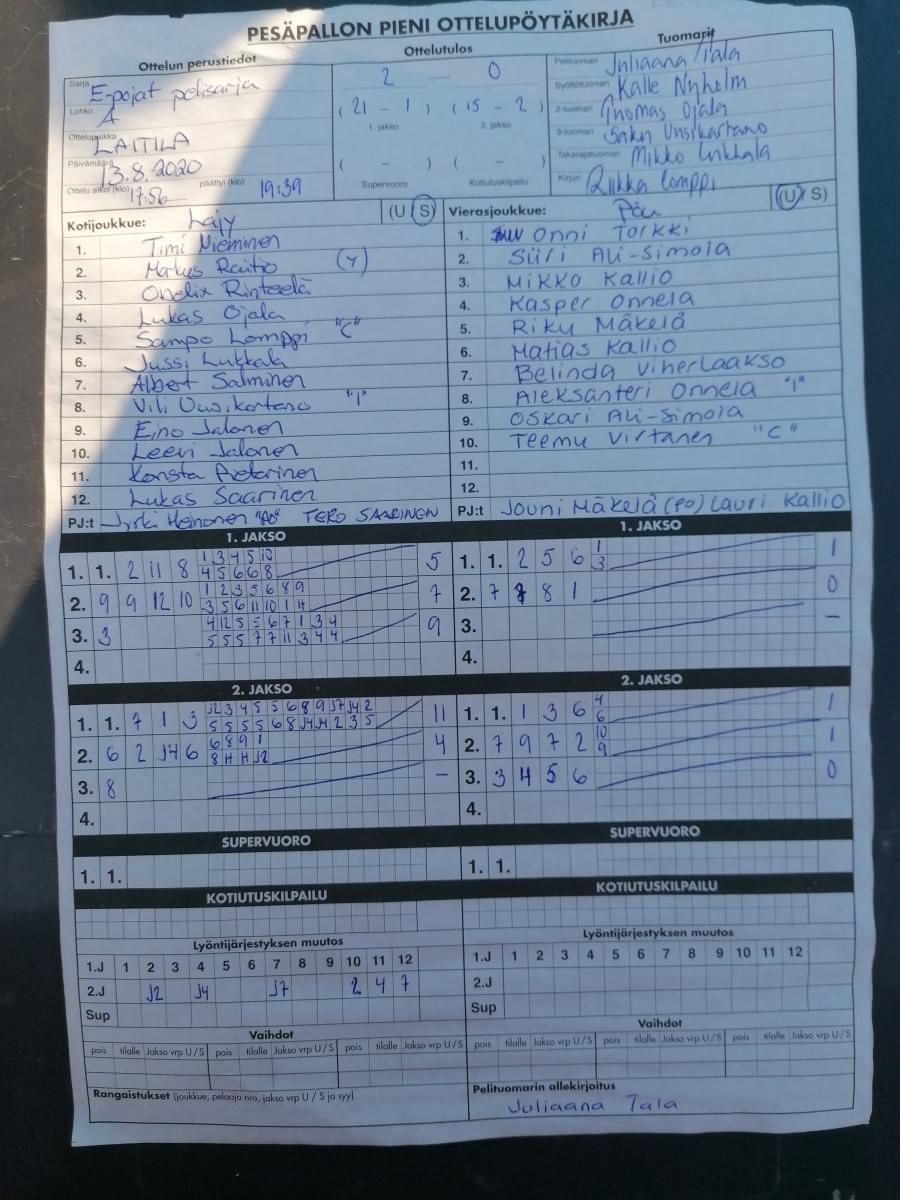 PESÄPALLON PIENI OTTELUPÖYTÄKIRJA
Ottelun perustiedot
Ottelutulos
Tuomarit
Sarja E-pojat pelisarja
Lohko A
Ottelupaikka LAITILA
Päivämäärä 13.8.2020
Ottelu alkoi (klo) 17:56 päättyi (klo) 19:39
2 — 0
( 21 - 1 ) ( 15 - 2 )
1. jakso 2. jakso
( - ) ( - )
Supervuoro Kotiutuskilpailu
Pelituomari Juliaana Tala
Syöttötuomari Kalle Nyholm
2-tuomari Tuomas Ojala
3-tuomari Saku Uusikartano
Takarajatuomari Mikko Lukkala
Kirjuri Riikka Lamppi
Kotijoukkue: Lajy (U S)
1. Timi Nieminen
2. Markus Raitio (Y)
3. Obelix Rinteelä
4. Lukas Ojala
5. Sampo Lamppi "C"
6. Jussi Lukkala
7. Albert Salminen
8. Vili Uusikartano "1"
9. Eino Jalonen
10. Leevi Jalonen
11. Konsta
12. Lukas Saarinen
PJ:t Jyrki Heinonen TERO SAARINEN
Vierasjoukkue: Pöu (U S)
1. Onni Torkki
2. Siiri Ali-Simola
3. Mikko Kallio
4. Kasper Onnela
5. Riku Mäkelä
6. Matias Kallio
7. Belinda Viherlaakso
8. Aleksanteri Onnela "1"
9. Oskari Ali-Simola
10. Teemu Virtanen "C"
11.
12.
PJ:t Jouni Mäkelä (PO) Lauri Kallio
1. JAKSO
1. 1. 2 11 8 1 3 4 5 10 5
4 5 6 6 8
2. 9 9 12 10 1 2 3 5 6 8 9 7
3 5 6 11 10 1 4
3. 3 4 12 5 5 6 7 1 3 4 9
5 5 5 7 7 11 3 4 4
4.
1. JAKSO
1. 1. 2 5 6 1 1
3
2. 7 8 1 0
3. –
4.
2. JAKSO
1. 1. 7 1 3 J2 3 4 5 5 6 8 9 J7 J4 2 11
5 5 5 5 6 8 J4 J4 2 3 5
2. 6 2 J4 6 6 8 9 1 4
8 J2
3. 8 –
4.
2. JAKSO
1. 1. 1 3 6 4 1
6
2. 7 9 7 2 10 1
9
3. 3 4 5 6 0
4.
SUPERVUORO
1. 1.
SUPERVUORO
1. 1.
KOTIUTUSKILPAILU
KOTIUTUSKILPAILU
Lyöntijärjestyksen muutos
1.J 1 2 3 4 5 6 7 8 9 10 11 12
2.J J2 J4 J7 2 4 7
Sup
Lyöntijärjestyksen muutos
1.J 1 2 3 4 5 6 7 8 9 10 11 12
2.J
Sup
Vaihdot
pois tilalle Jakso vrp U / S pois tilalle Jakso vrp U / S pois tilalle Jakso vrp U / S
Vaihdot
pois tilalle Jakso vrp U / S pois tilalle Jakso vrp U / S pois tilalle Jakso vrp U / S
Rangaistukset (joukkue, pelaaja nro, jakso vrp U / S ja syy)
Pelituomarin allekirjoitus
Juliaana Tala